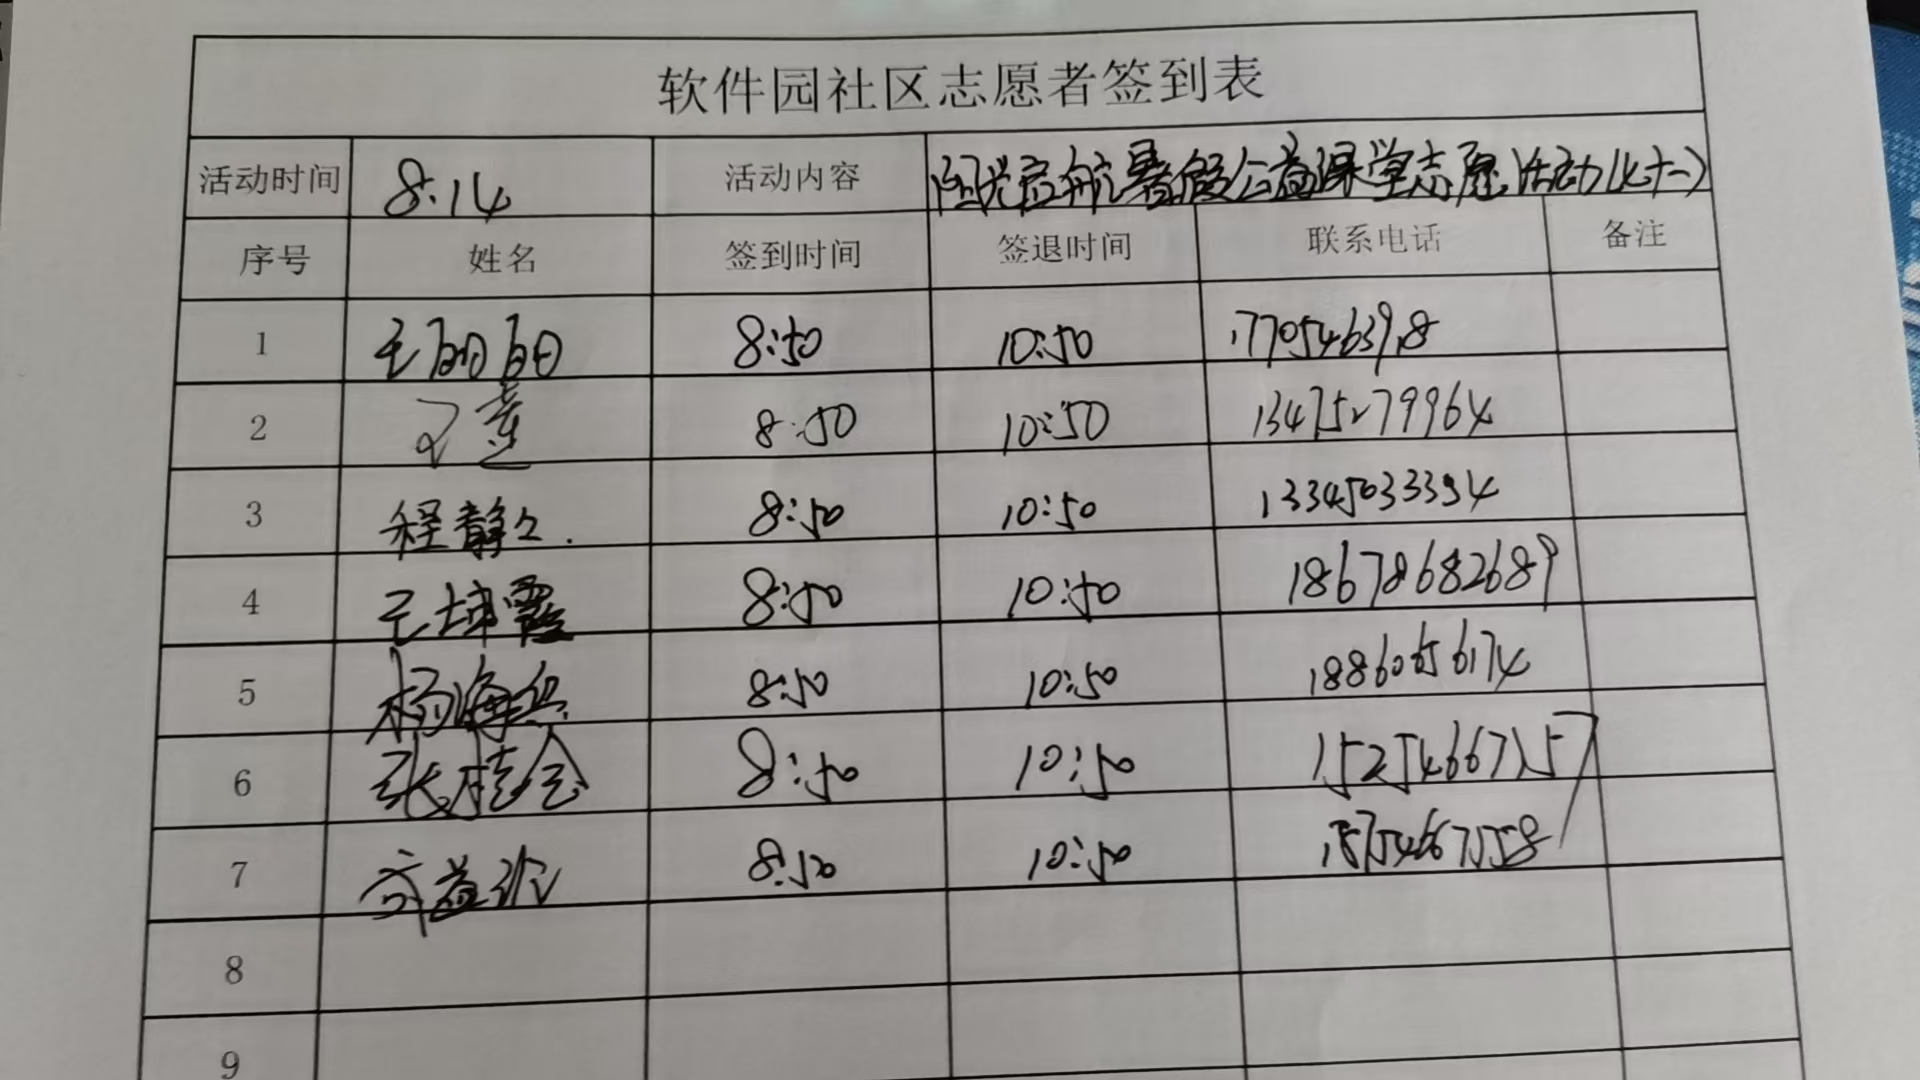 软件园社区志愿者签到表
活动时间 8.14 活动内容 阳光启航暑假公益课堂志愿活动(七十一)
序号 姓名 签到时间 签退时间 联系电话 备注
1 8:50 10:50
2 8:50 10:50 13475279964
3 程静 8:50 10:50 13345033394
4 王坤霞 8:50 10:50 18678682689
5 杨海兵 8:50 10:50 18860656174
6 张桂金 8:50 10:50 15254667157
7 8:50 10:50
8
9